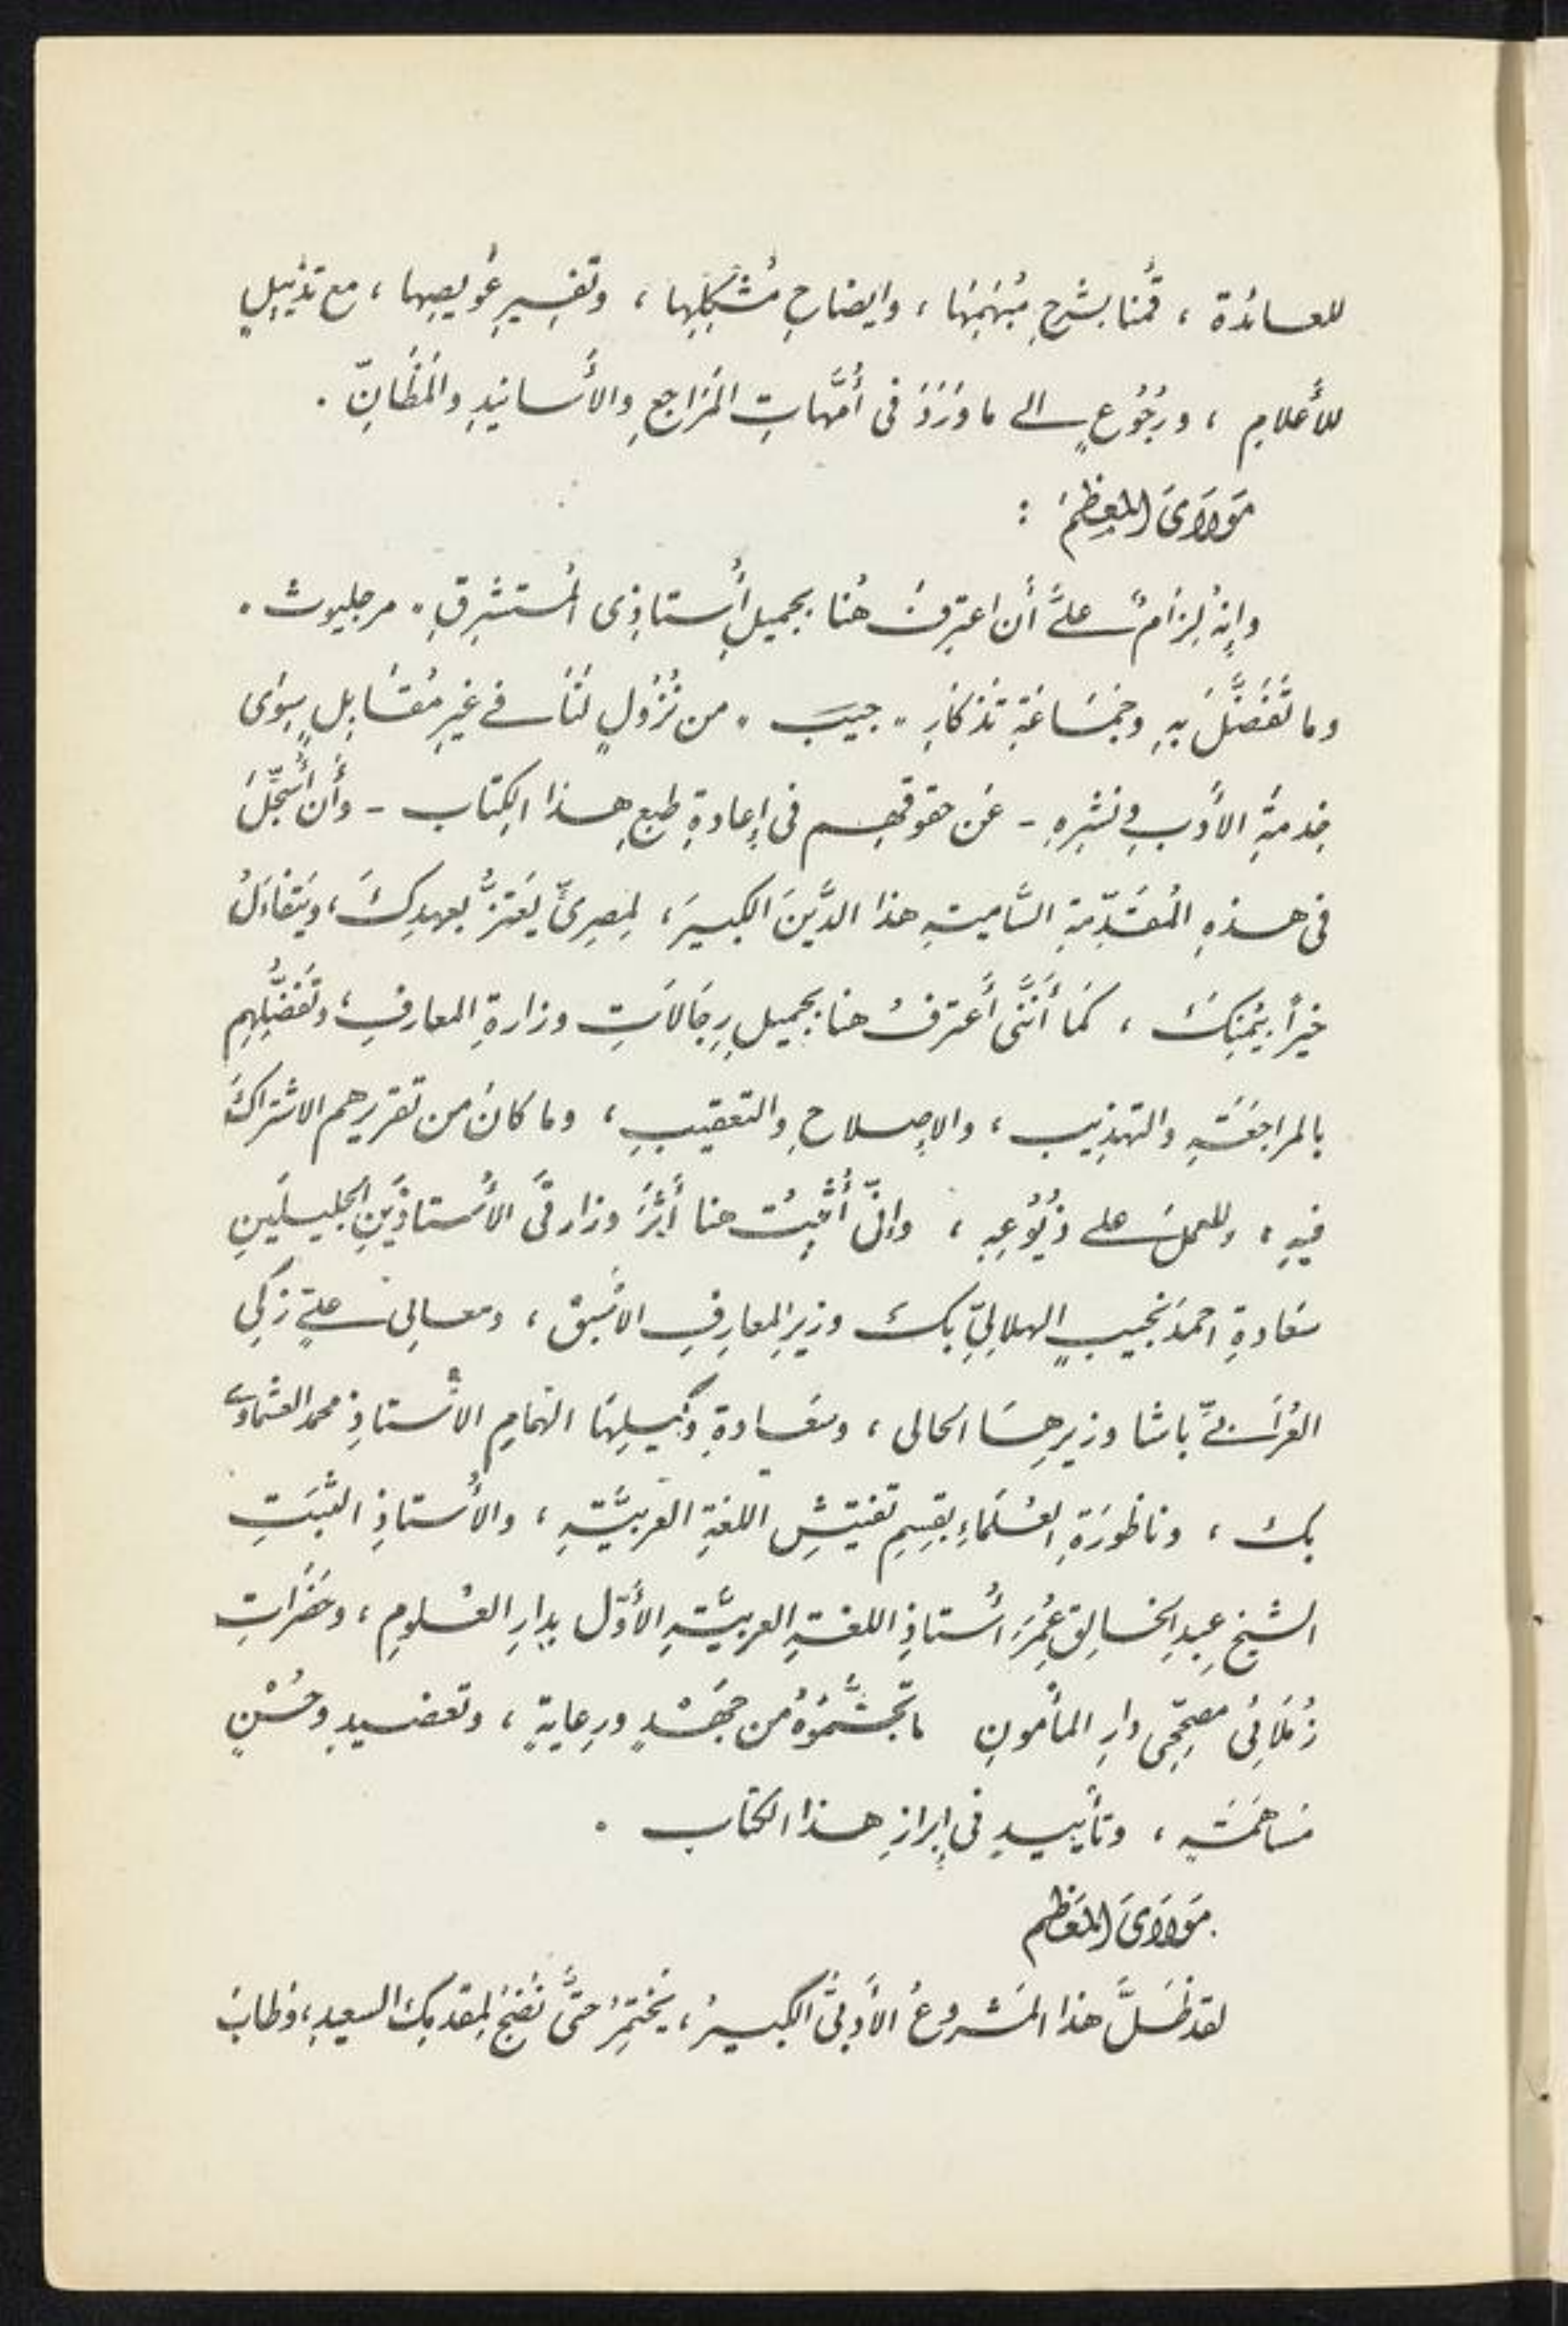 للعائدة ، قُمنا بشرحِ مُبْهَمِهَا ، وايضاحِ مُشْكِلِها ، وتفسِيرِ عَويصِها ، مع تذْييلٍ
للأَعلامِ ، ورُجُوعٍ الى ما وَرَدَ فى أُمَّهاتِ المَرَاجعِ والأَسانيدِ والمَظَانِّ .
مَوْلاَىَ المعظَّمَ :
وإِنهُ لِزامٌ علىَّ أن اعترِفَ هُنا بجميلِ أُستاذِى المُستشرِقِ " مرجليوث "
وما تَفَضَّلَ بهِ وجَمَاعَةِ تَذْكارِ " جيبَ " من نُزُولٍ لنَا فى غيرِ مُقَابِلٍ سِوَى
خِدمَةِ الأَدبِ ونشْرِهِ - عَن حقوقهِم فى إِعادةِ طبعِ هذا الكِتاب - وأَن أُسَجِّلَ
فى هذهِ المُقَدِّمةِ السَّاميةِ هذا الدَّينَ الكبيرَ ، لمِصرِىٍّ يَعتزُّ بعهدِكَ ، ويَتفاءَلُ
خيراً بيُمنِكَ ، كَمَا أَنَّنى أَعترفُ هنا بجميلِ رِجَالاَتِ وزارةِ المعارفِ ، وتَفَضُّلِهِم
بالمراجَعَةِ والتهذِيبِ ، والاِصلاحِ والتعقيبِ ، وما كانَ من تقريرِهم الاشتراكَ
فيهِ ، وللعملِ على ذُيُوُعِهِ ، وانِّى أُثْبِتُ هنا أَثَرَ وزارتَىِ الأُستاذَيْنِ الجليلَينِ
سَعَادةِ احمدَ نجيبٍ الهلالِىِّ بك وزيرِ المعارِفِ الأَسْبقِ ، ومعالِى علىٍّ زكِى
العُرَابىِّ باشا وزيرِهَا الحالى ، وسَعَادةِ وكيلِهَا الهُمامِ الأُستاذِ محمد العشماوى
بك ، وناظُورَةِ العُلَمَاءِ بقِسمِ تفتيشِ اللغةِ العربيَّةِ ، والأُستاذِ الثَّبَتِ
الشيخِ عبدِ الخالِقِ عُمَرَ أُستاذِ اللغةِ العربيَّةِ الأَوَّل بدارِ العُلومِ ، وحَضَراتِ
زُمَلائِى مصحِّحِى دارِ المأمونِ ما تجَشَّمُوهُ من جَهْدٍ ورِعايةٍ ، وتعضيدٍ وحُسْنِ
مُساهَمَةٍ ، وتأييدٍ فى إِبرازِ هذا الكتاب .
مَوْلاَىَ المُعَظَّم
لقد ظَلَّ هذا المَشروعُ الأَدبىُّ الكبيرُ ، يَخْتمِرُ حتَّى نَضِجَ لمِقدمِكَ السعيدِ ، وطابَ